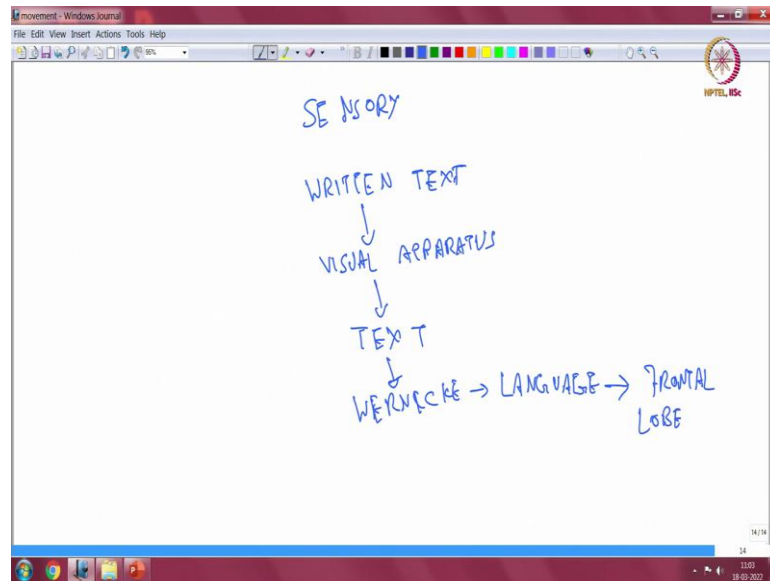 movement - Windows Journal
File Edit View Insert Actions Tools Help
95%
B I
NPTEL, IISc
SENSORY
WRITTEN TEXT
↓
VISUAL APPARATUS
↓
TEXT
↓
WERNECKE → LANGUAGE → FRONTAL
LOBE
14/14
14
11:03
18-03-2022